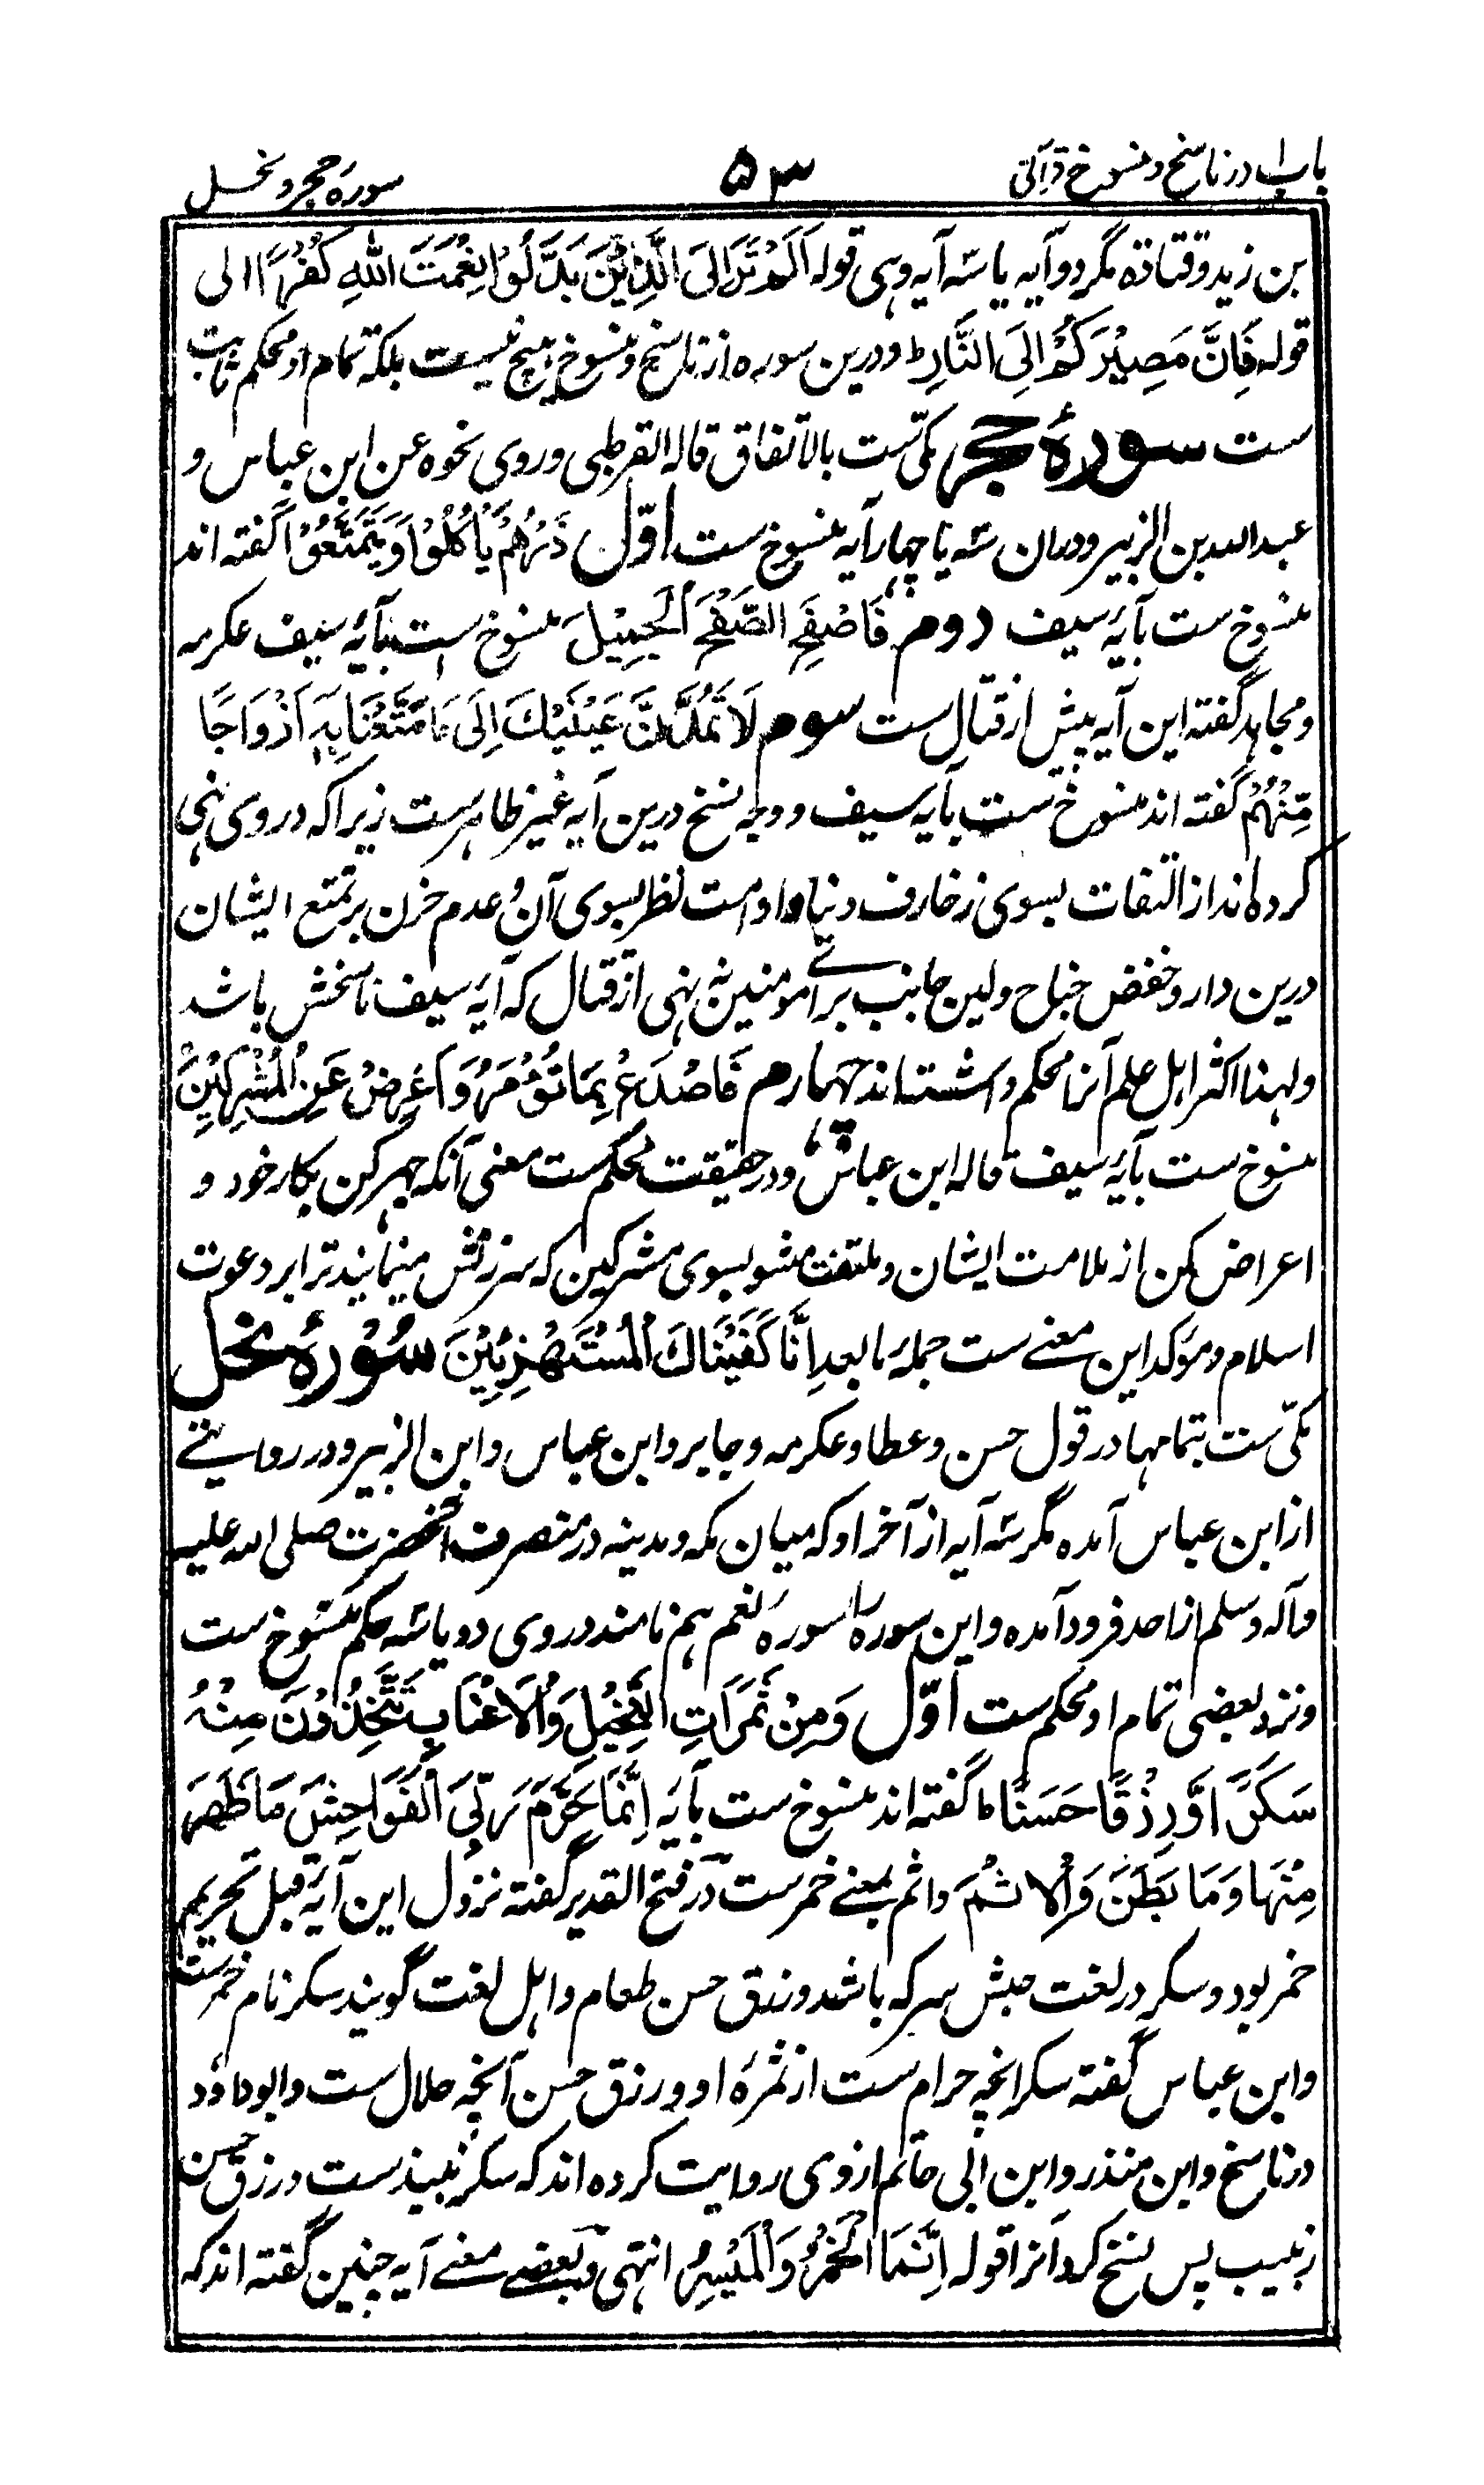 باب ا در ناسخ و منسوخ قرآنی
۵۳
سورهٔ حجر و نحل
بن زید و قتاده مگر دو آیه یا سه آیه وهی قوله اَلَمْ تَرَ اِلَی الَّذِیْنَ بَدَّلُوْا نِعْمَتَ اللهِ کُفْرًا الی
قوله فَاِنَّ مَصِیْرَکُمْ اِلَی النَّارِ ط و درین سوره از ناسخ و منسوخ هیچ نیست بلکه تمام او محکم ثابت
ست سورهٔ حجر مکی ست بالاتفاق قاله القرطبی وروی نحوه عن ابن عباس و
عبدالله بن الزبیر و دران سه یا چهار آیه منسوخ ست اوّل ذَرْهُمْ یَاْکُلُوْا وَیَتَمَتَّعُوْا گفته اند
منسوخ ست بآیهٔ سیف دوم فَاصْفَحِ الصَّفْحَ الْجَمِیْلَ منسوخ است بآیهٔ سیف عکرمه
و مجاهد گفته این آیه پیش از قتال ست سوم لَا تَمُدَّنَّ عَیْنَیْكَ اِلَی مَا مَتَّعْنَا بِهٖ اَزْوَاجًا
مِّنْهُمْ گفته اند منسوخ ست بآیه سیف و وجه نسخ درین آیه غیر ظاهرست زیرا که در وی نهی
کرده اند از التفات بسوی زخارف دنیا و ادامت نظر بسوی آن و عدم حزن بر تمتع ایشان
درین دار و خفض جناح و لین جانب برای مومنین نه نهی از قتال که آیهٔ سیف ناسخش باشد
ولهذا اکثر اهل علم آنرا محکم داشته اند چهارم فَاصْدَعْ بِمَا تُؤْمَرُ وَاَعْرِضْ عَنِ الْمُشْرِکِیْنَ
منسوخ ست بآیهٔ سیف قاله ابن عباس و در حقیقت محکم ست معنی آنکه جهر کن بکار خود و
اعراض کن از ملامت ایشان و ملتفت مشو بسوی مشرکین که سرزنش مینمایند ترا بر دعوت
اسلام و موکد این معنے ست جملهٔ ما بعد اِنَّا کَفَیْنَاكَ الْمُسْتَهْزِئِیْنَ سُوْرهٔ نحل
مکی ست بتمامها در قول حسن و عطا و عکرمه و جابر و ابن عباس و ابن الزبیر و در روایتے
از ابن عباس آمده مگر سه آیه از آخر او که میان مکه و مدینه در منصرف آنحضرت صلی الله علیه
وآله وسلم از احد فرود آمده و این سوره را سورهٔ نعم هم نامند در وی دو یا سه حکم منسوخ ست
و نزد بعضی تمام او محکم ست اوّل وَمِنْ ثَمَرَاتِ النَّخِیْلِ وَالْاَعْنَابِ تَتَّخِذُوْنَ مِنْهُ
سَکَرًا وَّرِزْقًا حَسَنًا ط گفته اند منسوخ ست بآیه اِنَّمَا حَرَّمَ رَبِّیَ الْفَوَاحِشَ مَا ظَهَرَ
مِنْهَا وَمَا بَطَنَ وَالْاِثْمَ و اثم بمعنے خمرست در فتح القدیر گفته نزول این آیه قبل تحریم
خمر بود و سکر در لغت حبش سرکه باشد و رزق حسن طعام و اهل لغت گویند سکر نام خمرست
و ابن عباس گفته سکر انچه حرام ست از ثمرهٔ او و رزق حسن آنچه حلال ست و ابو داؤد
در ناسخ و ابن منذر و ابن ابی حاتم از وی روایت کرده اند که سکر نبیذ ست و رزق حسن
زبیب پس نسخ کرد آنرا قوله اِنَّمَا الْخَمْرُ وَالْمَیْسِرُ انتهی و بعضے معنے آیه چنین گفته اند که